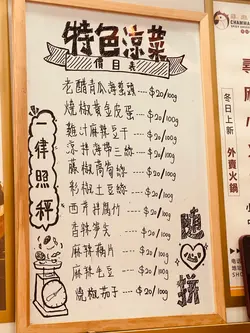 特色涼菜
價目表
老醋青瓜海蜇頭 ---- $20/100g
燒椒黃金皮蛋 --- $20/100g
雞汁麻辣豆干 --- $20/100g
涼拌海帶三絲 --- $20/100g
藤椒萵筍絲 ---- $20/100g
彩椒土豆絲 ---- $20/100g
西芹拌腐竹 --- $20/100g
香辣筍尖 ---- $20/100g
麻辣藕片 --- $20/100g
麻辣毛豆 --- $20/100g
燒椒茄子 --- $20/100g
一律照秤
隨
心
拼
外賣火鍋